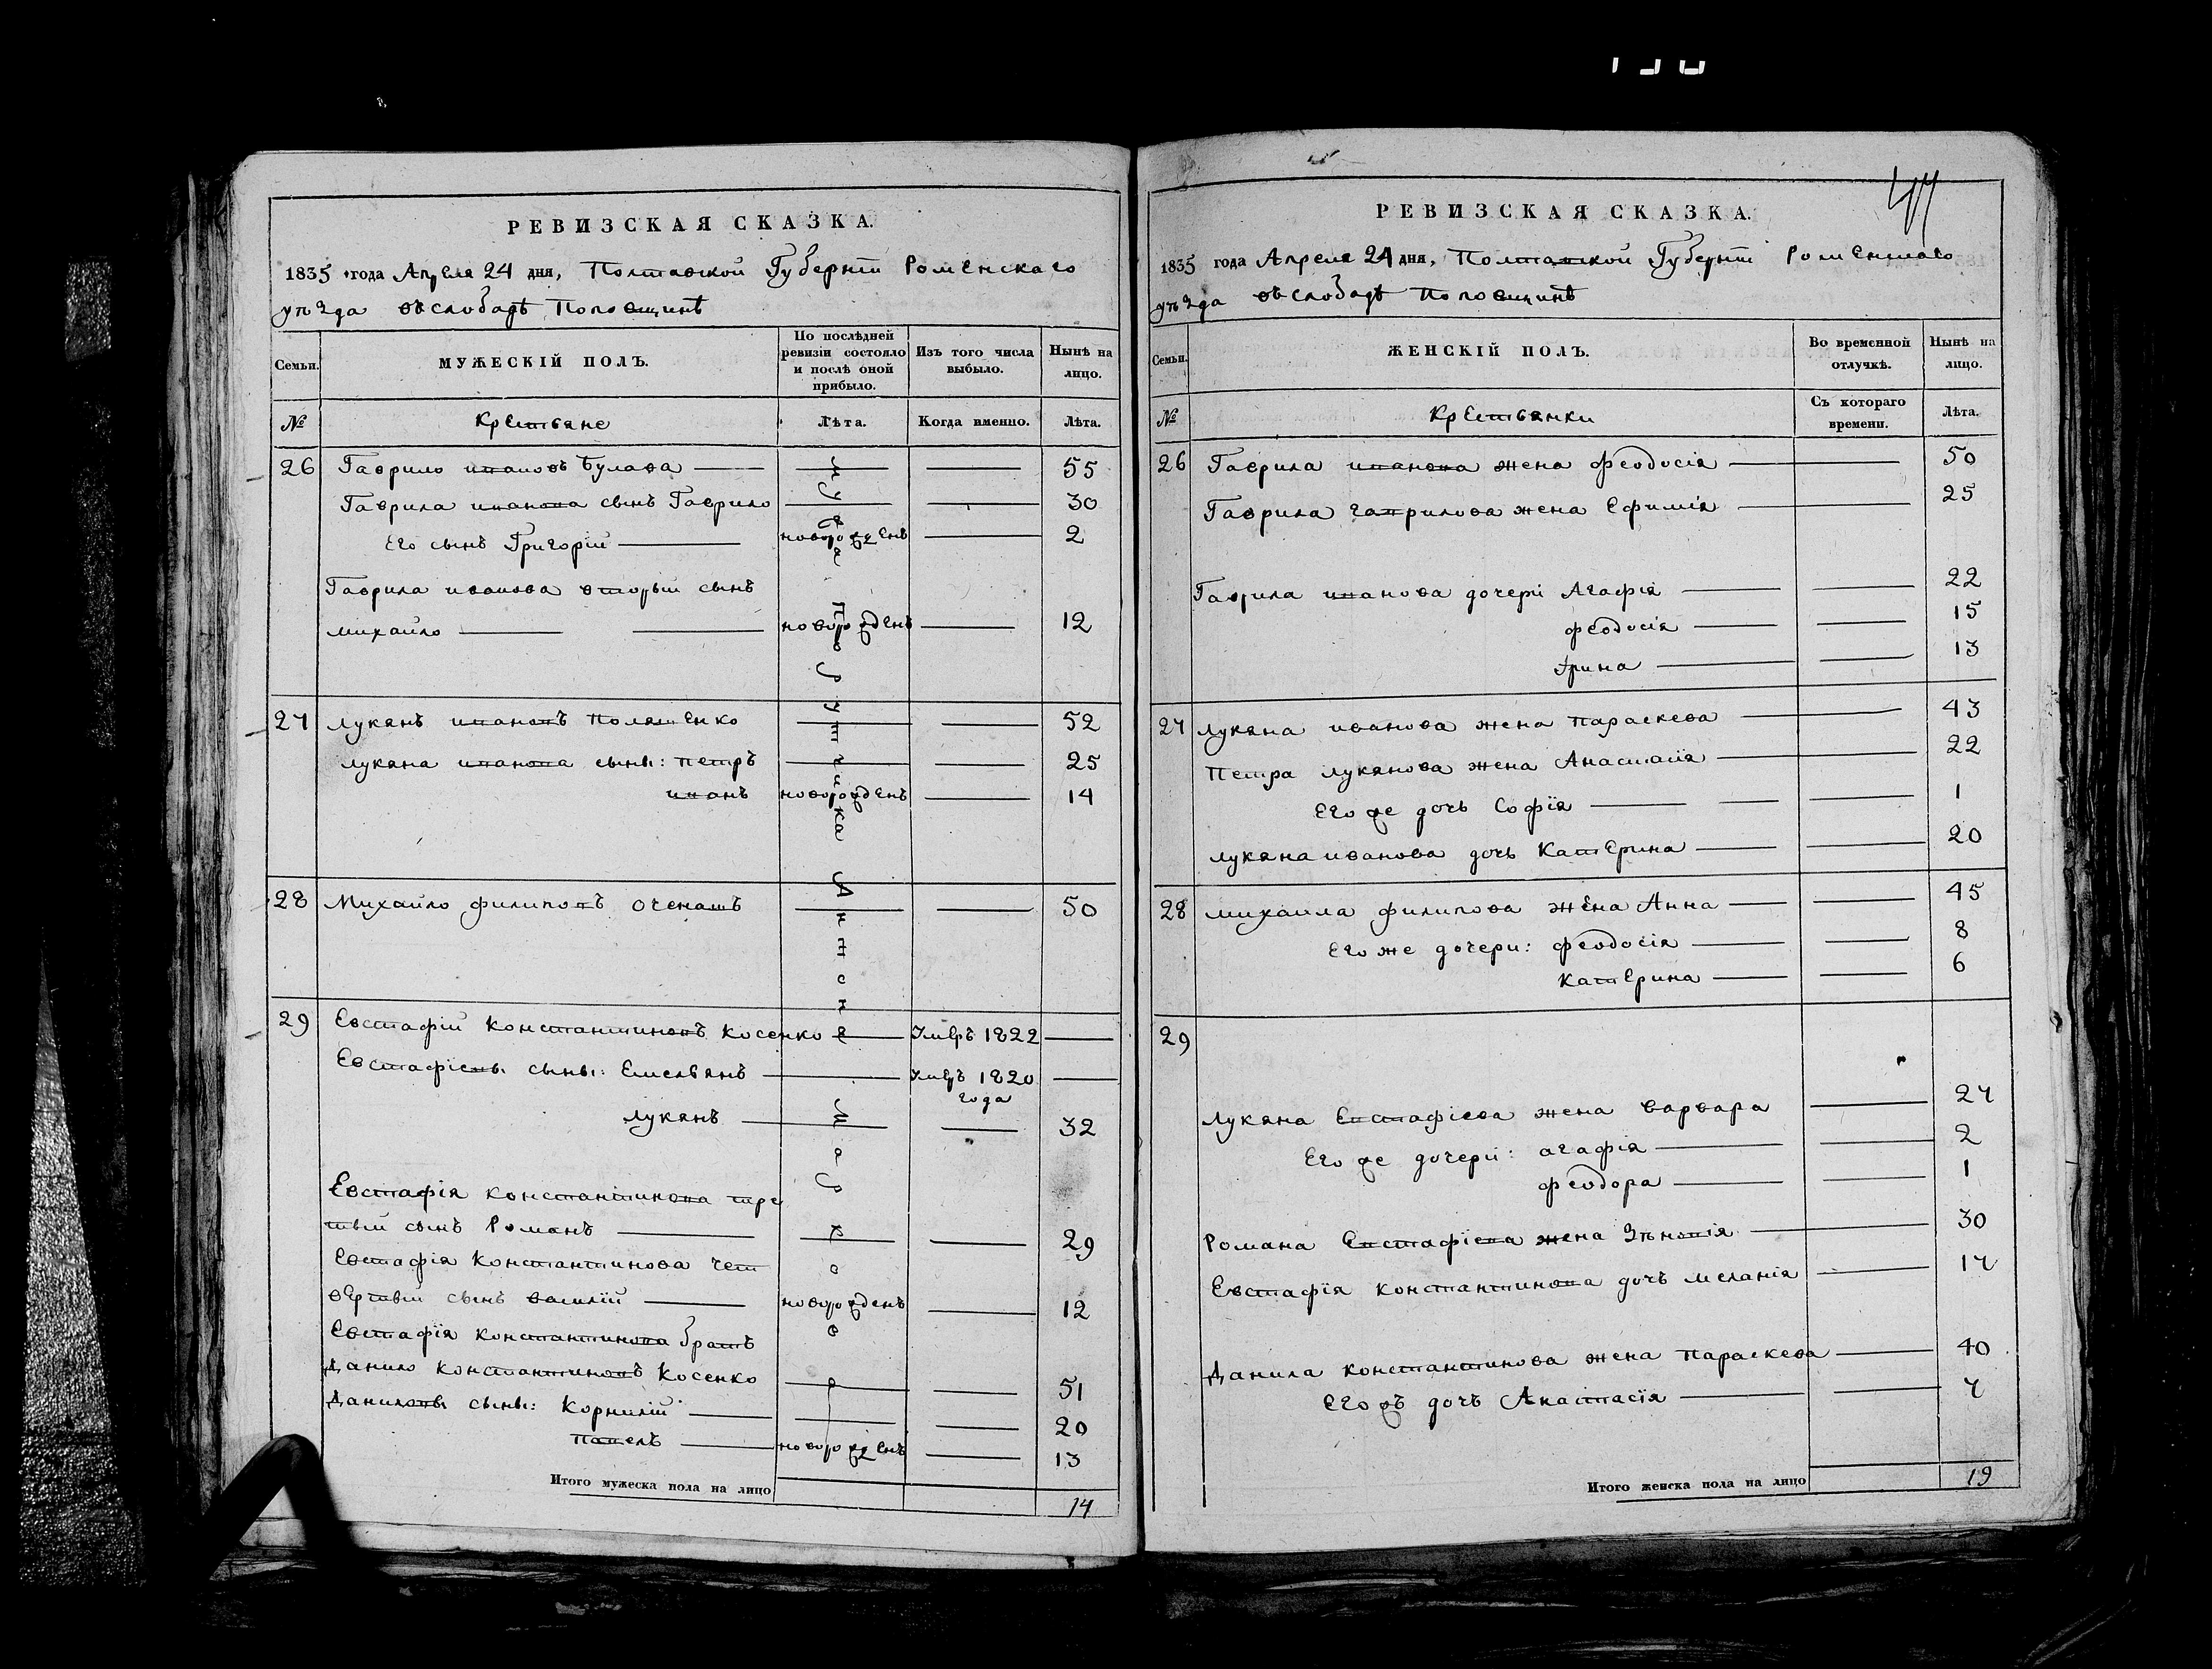 РЕВИЗСКАЯ СКАЗКА.
1835 года Апреля 24 дня, Полтавской Губернїи Роменскаго
уѣзда въ слободѣ Половщинѣ
Семьи.
МУЖЕСКІЙ ПОЛЪ.
По послѣдней ревизіи состояло и послѣ оной прибыло.
Изъ того числа выбыло.
Нынѣ на лицо.
№
Крестьяне
Лѣта.
Когда именно.
Лѣта.
26 Гаврило ивановъ Булава 55
Гаврила иванова сынъ Гаврило 30
Его сынъ Григорій новорожденъ 2
Гаврила иванова вторый сынъ
михайло новорожденъ 12
27 лукянъ ивановъ Поляшенко 52
лукяна иванова сыны: петръ 25
иванъ новорожденъ 14
28 Михайло филиповъ Оченашъ 50
29 Евстафій Константиновъ Косенко Умеръ 1822
Евстафіевы сыны: Емельянъ Умеръ 1820
года
лукянъ 32
Евстафія константинова тре
тий сынъ Романъ 29
Евстафія Константинова чет
вертый сынъ василій новорожденъ 12
Евстафїя константинова братъ
Данило константиновъ Косенко 51
Даниловы сыны: Корнилій 20
павелъ новорожденъ 13
Итого мужеска пола на лицо
14
РЕВИЗСКАЯ СКАЗКА.
1835 года Апреля 24 дня, Полтавской Губернїи Роменскаго
уѣзда въ слободѣ Половщинѣ
Семьи.
ЖЕНСКІЙ ПОЛЪ.
Во временной отлучкѣ.
Нынѣ на лицо.
№
Крестьянки
Съ котораго времени.
Лѣта.
26 Гаврила иванова жена феодосія 50
Гаврила гаврилова жена Ефимія 25
Гаврила иванова дочери Агафія 22
феодосія 15
Ирина 13
27 лукяна иванова жена параскева 43
Петра лукянова жена Анастасія 22
Его же дочь Софїя 1
лукяна иванова дочь Катерина 20
28 михайла филипова жена Анна 45
Его же дочери: феодосія 8
катерина 6
29
лукяна Евстафіева жена варвара 27
Его же дочери: агафія 2
феодора 1
Романа Евстафіева жена Зѣновія 30
Евстафїя константинова дочь меланія 17
Данила константинова жена параскева 40
Его жъ дочъ Анастасїя 7
Итого женска пола на лицо
19